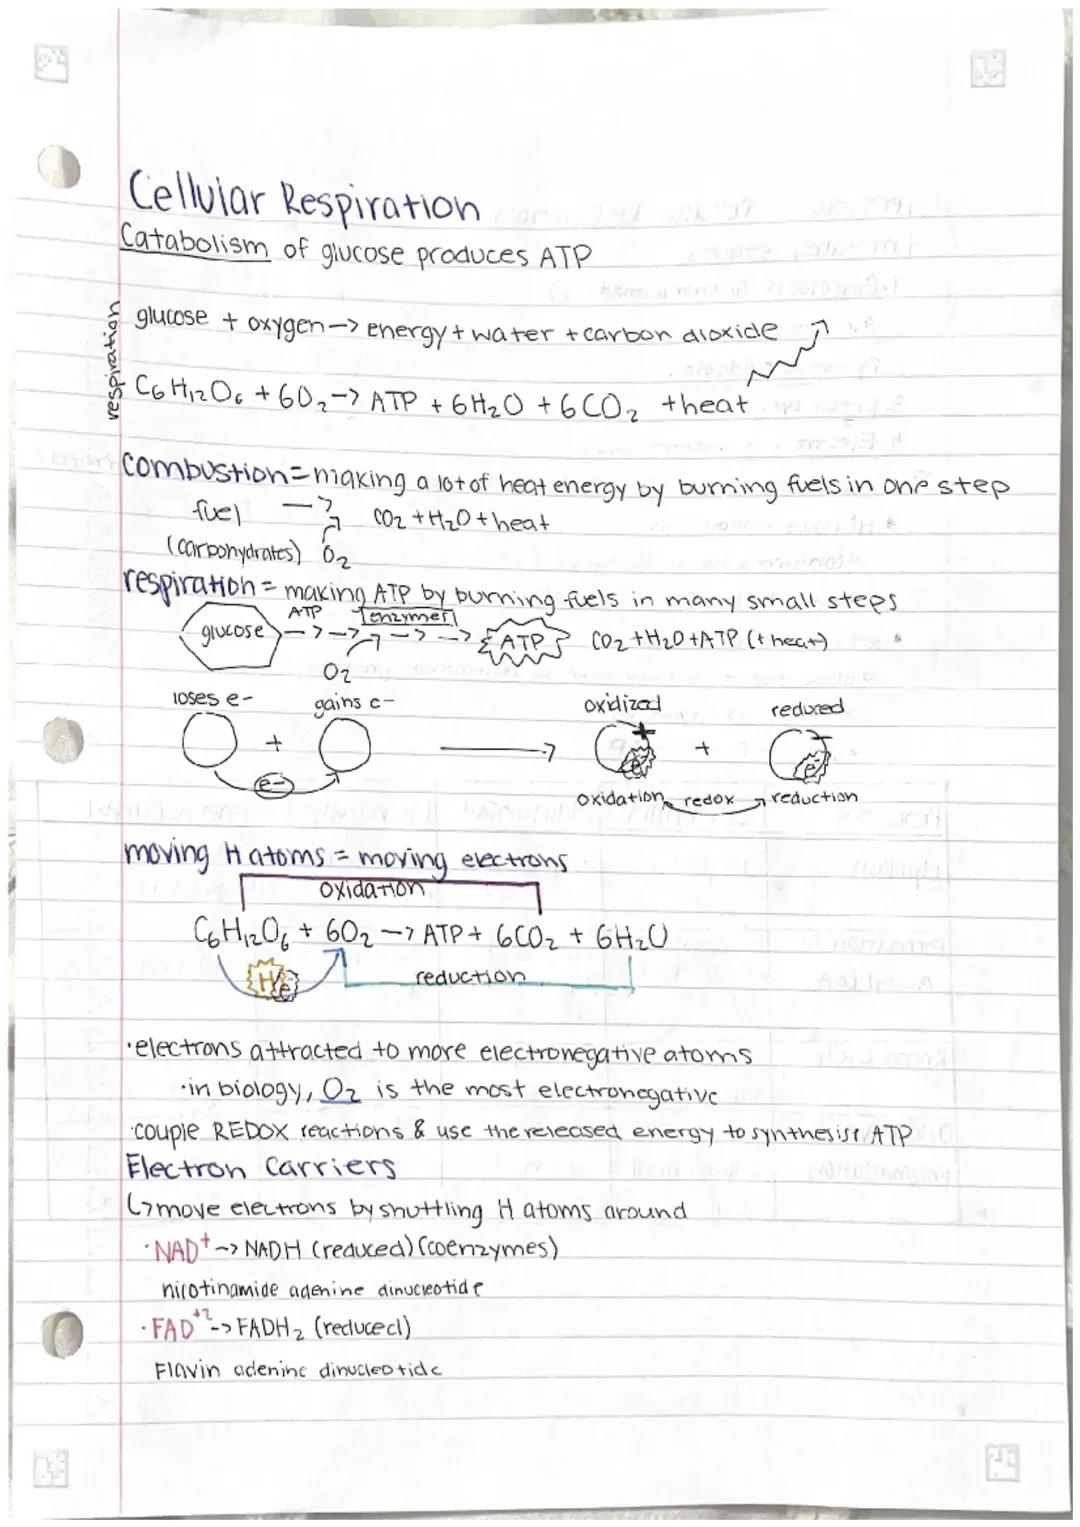 Cellular Respiration
Catabolism of glucose produces ATP
respiration
glucose + oxygen -> energy + water + carbon dioxide
C6H12O6 + 6O2 -> ATP + 6H2O + 6CO2 + heat
combustion = making a lot of heat energy by burning fuels in one step
fuel -> CO2 + H2O + heat
(carbohydrates) O2
respiration = making ATP by burning fuels in many small steps
ATP enzymes
glucose -> -> -> -> ATP CO2 + H2O + ATP (+ heat)
O2
loses e- gains e- oxidized reduced
+ -> + + -
e- e- e-
oxidation redox reduction
moving H atoms = moving electrons
oxidation
C6H12O6 + 6O2 -> ATP + 6CO2 + 6H2O
H e- reduction
·electrons attracted to more electronegative atoms
·in biology, O2 is the most electronegative
·couple REDOX reactions & use the released energy to synthesise ATP
Electron Carriers
↳ move electrons by shuttling H atoms around
·NAD+ -> NADH (reduced) (coenzymes)
nicotinamide adenine dinucleotide
·FAD+2 -> FADH2 (reduced)
Flavin adenine dinucleotide